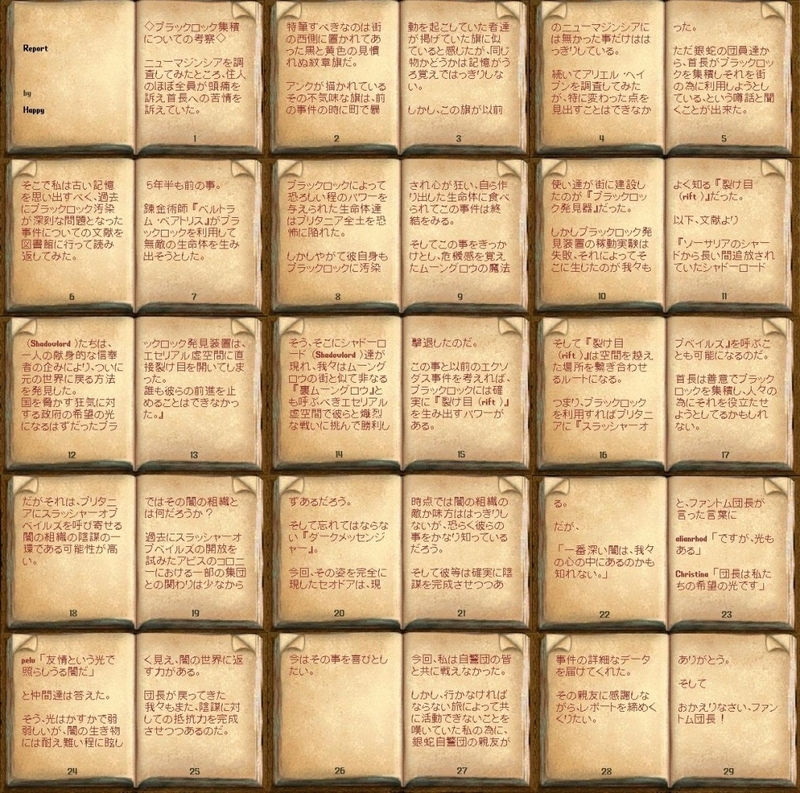 Report
by
Happy
◇ブラックロック集積
についての考察◇
ニューマジンシアを調
査してみたところ、住人
のほぼ全員が頭痛を
訴え首長への苦情を
訴えていた。
1
特筆すべきなのは街
の西側に置かれてあ
った黒と黄色の見慣
れぬ紋章旗だ。
アンクが描かれている
その不気味な旗は、前
の事件の時に町で暴
2
動を起こしていた者達
が掲げていた旗に似
ていると感じたが、同じ
物かどうかは記憶がう
ろ覚えではっきりしな
い。
しかし、この旗が以前
3
のニューマジンシアに
は無かった事だけはは
っきりしている。
続いてアリエル・ヘイ
ブンを調査してみた
が、特に変わった点を
見出すことはできなか
4
った。
ただ銀蛇の団員達か
ら、首長がブラックロッ
クを集積しそれを街
の為に利用しようとし
ている、という噂話と聞
くことが出来た。
5
そこで私は古い記憶
を思い出すべく、過去
にブラックロック汚染
が深刻な問題となった
事件についての文献を
図書館に行って読み
返してみた。
6
5年半も前の事。
錬金術師『ベルトラ
ム・ベアトリス』がブラ
ックロックを利用して
無敵の生命体を生み
出そうとした。
7
ブラックロックによって
恐ろしい程のパワーを
与えられた生命体達
はブリタニア全土を恐
怖に陥れた。
しかしやがて彼自身も
ブラックロックに汚染
8
され心が狂い、自ら作
り出した生命体に食べ
られてこの事件は終
結をみる。
そしてこの事をきっか
けとし、危機感を覚え
たムーングロウの魔法
9
使い達が街に建設し
たのが『ブラックロッ
ク発見器』だった。
しかしブラックロック発
見装置の稼動実験は
失敗、それによってそ
こに生じたのが我々も
10
よく知る『裂け目
（rift）』だった。
以下、文献より
『ソーサリアのシャー
ドから長い間追放され
ていたシャドーロード
11
（Shadowlord）たちは、
一人の献身的な信奉
者の企みにより、ついに
元の世界に戻る方法
を発見した。
国を脅かす狂気に対
する政府の希望の光
になるはずだったブラ
12
ックロック発見装置は、
エセリアル虚空間に直
接裂け目を開いてしま
った。
誰も彼らの前進を止
めることはできなかっ
た。』
13
そう、そこにシャドーロ
ード（Shadowlord）達が
現れ、我々はムーング
ロウの街と似て非なる
『裏ムーングロウ』と
も呼ぶべきエセリアル
虚空間で彼らと熾烈
な戦いに挑んで勝利し
14
撃退したのだ。
この事と以前のエクソ
ダス事件を考えれば、
ブラックロックには確
実に『裂け目（rift）』
を生み出すパワーが
ある。
15
そして『裂け目
（rift）』は空間を越え
た場所を繋ぎ合わせ
るルートになる。
つまり、ブラックロック
を利用すればブリタニ
アに『スラッシャーオ
16
ブベイルズ』を呼ぶこ
とも可能になるのだ。
首長は善意でブラック
ロックを集積し、人々の
為にそれを役立たせ
ようとしてるかもしれ
ない。
17
だがそれは、ブリタニ
アにスラッシャーオブ
ベイルズを呼び寄せる
闇の組織の陰謀の一
環である可能性が高
い。
18
ではその闇の組織と
は何だろうか？
過去にスラッシャーオ
ブベイルズの開放を
試みたアビスのコロニ
ーにおける一部の集団
との関わりは少なから
19
ずあるだろう。
そして忘れてはならな
い『ダークメッセンジ
ャー』。
今回、その姿を完全に
現したセオドアは、現
20
時点では闇の組織の
敵か味方ははっきりし
ないが、恐らく彼らの
事をかなり知っている
だろう。
そして彼等は確実に陰
謀を完成させつつあ
21
る。
だが、
「一番深い闇は、我々
の心の中にあるのかも
知れない。」
22
と、ファントム団長が
言った言葉に
alianrhod「ですが、光も
ある」
Christina「団長は私た
ちの希望の光です」
23
pelu「友情という光で
照らしうる闇だ」
と仲間達は答えた。
そう、光はかすかで弱
弱しいが、闇の生き物
には耐え難い程に眩し
24
く見え、闇の世界に返
す力がある。
団長が戻ってきた
我々もまた、陰謀に対
しての抵抗力を完成
させつつあるのだ。
25
今はその事を喜びとし
たい。
26
今回、私は自警団の皆
と共に戦えなかった。
しかし、行かなければ
ならない旅によって共
に活動できないことを
嘆いていた私の為に、
銀蛇自警団の親友が
27
事件の詳細なデータ
を届けてくれた。
その親友に感謝しな
がら、レポートを締めく
くりたい。
28
ありがとう。
そして
おかえりなさい、ファン
トム団長！
29